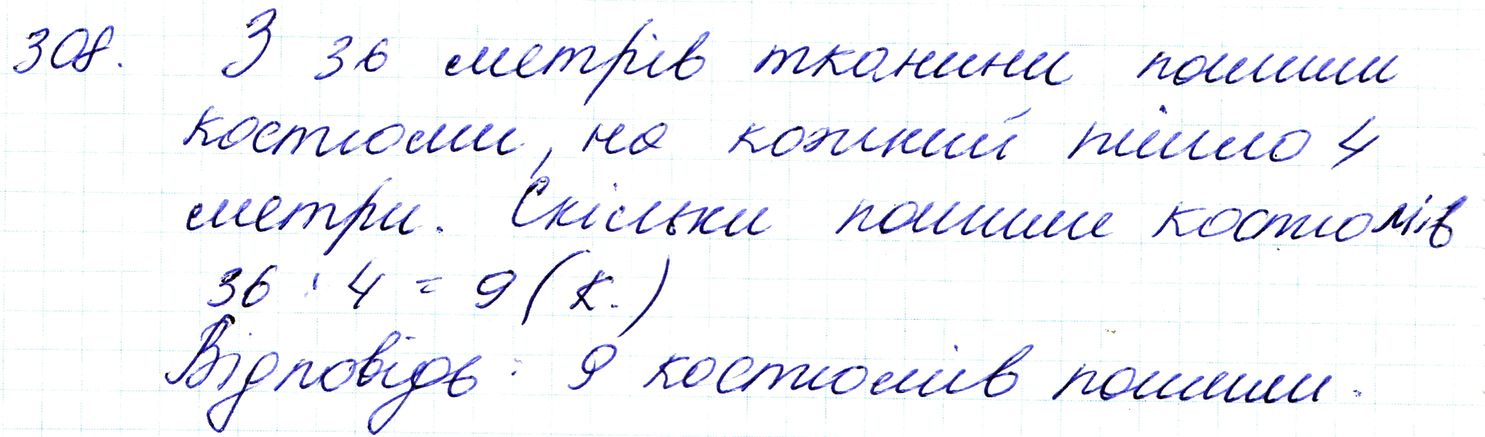 308. З 36 метрів тканини пошили
костюми, на кожний пішло 4
метри. Скільки пошили костюмів
36 : 4 = 9 (к.)
Відповідь: 9 костюмів пошили.